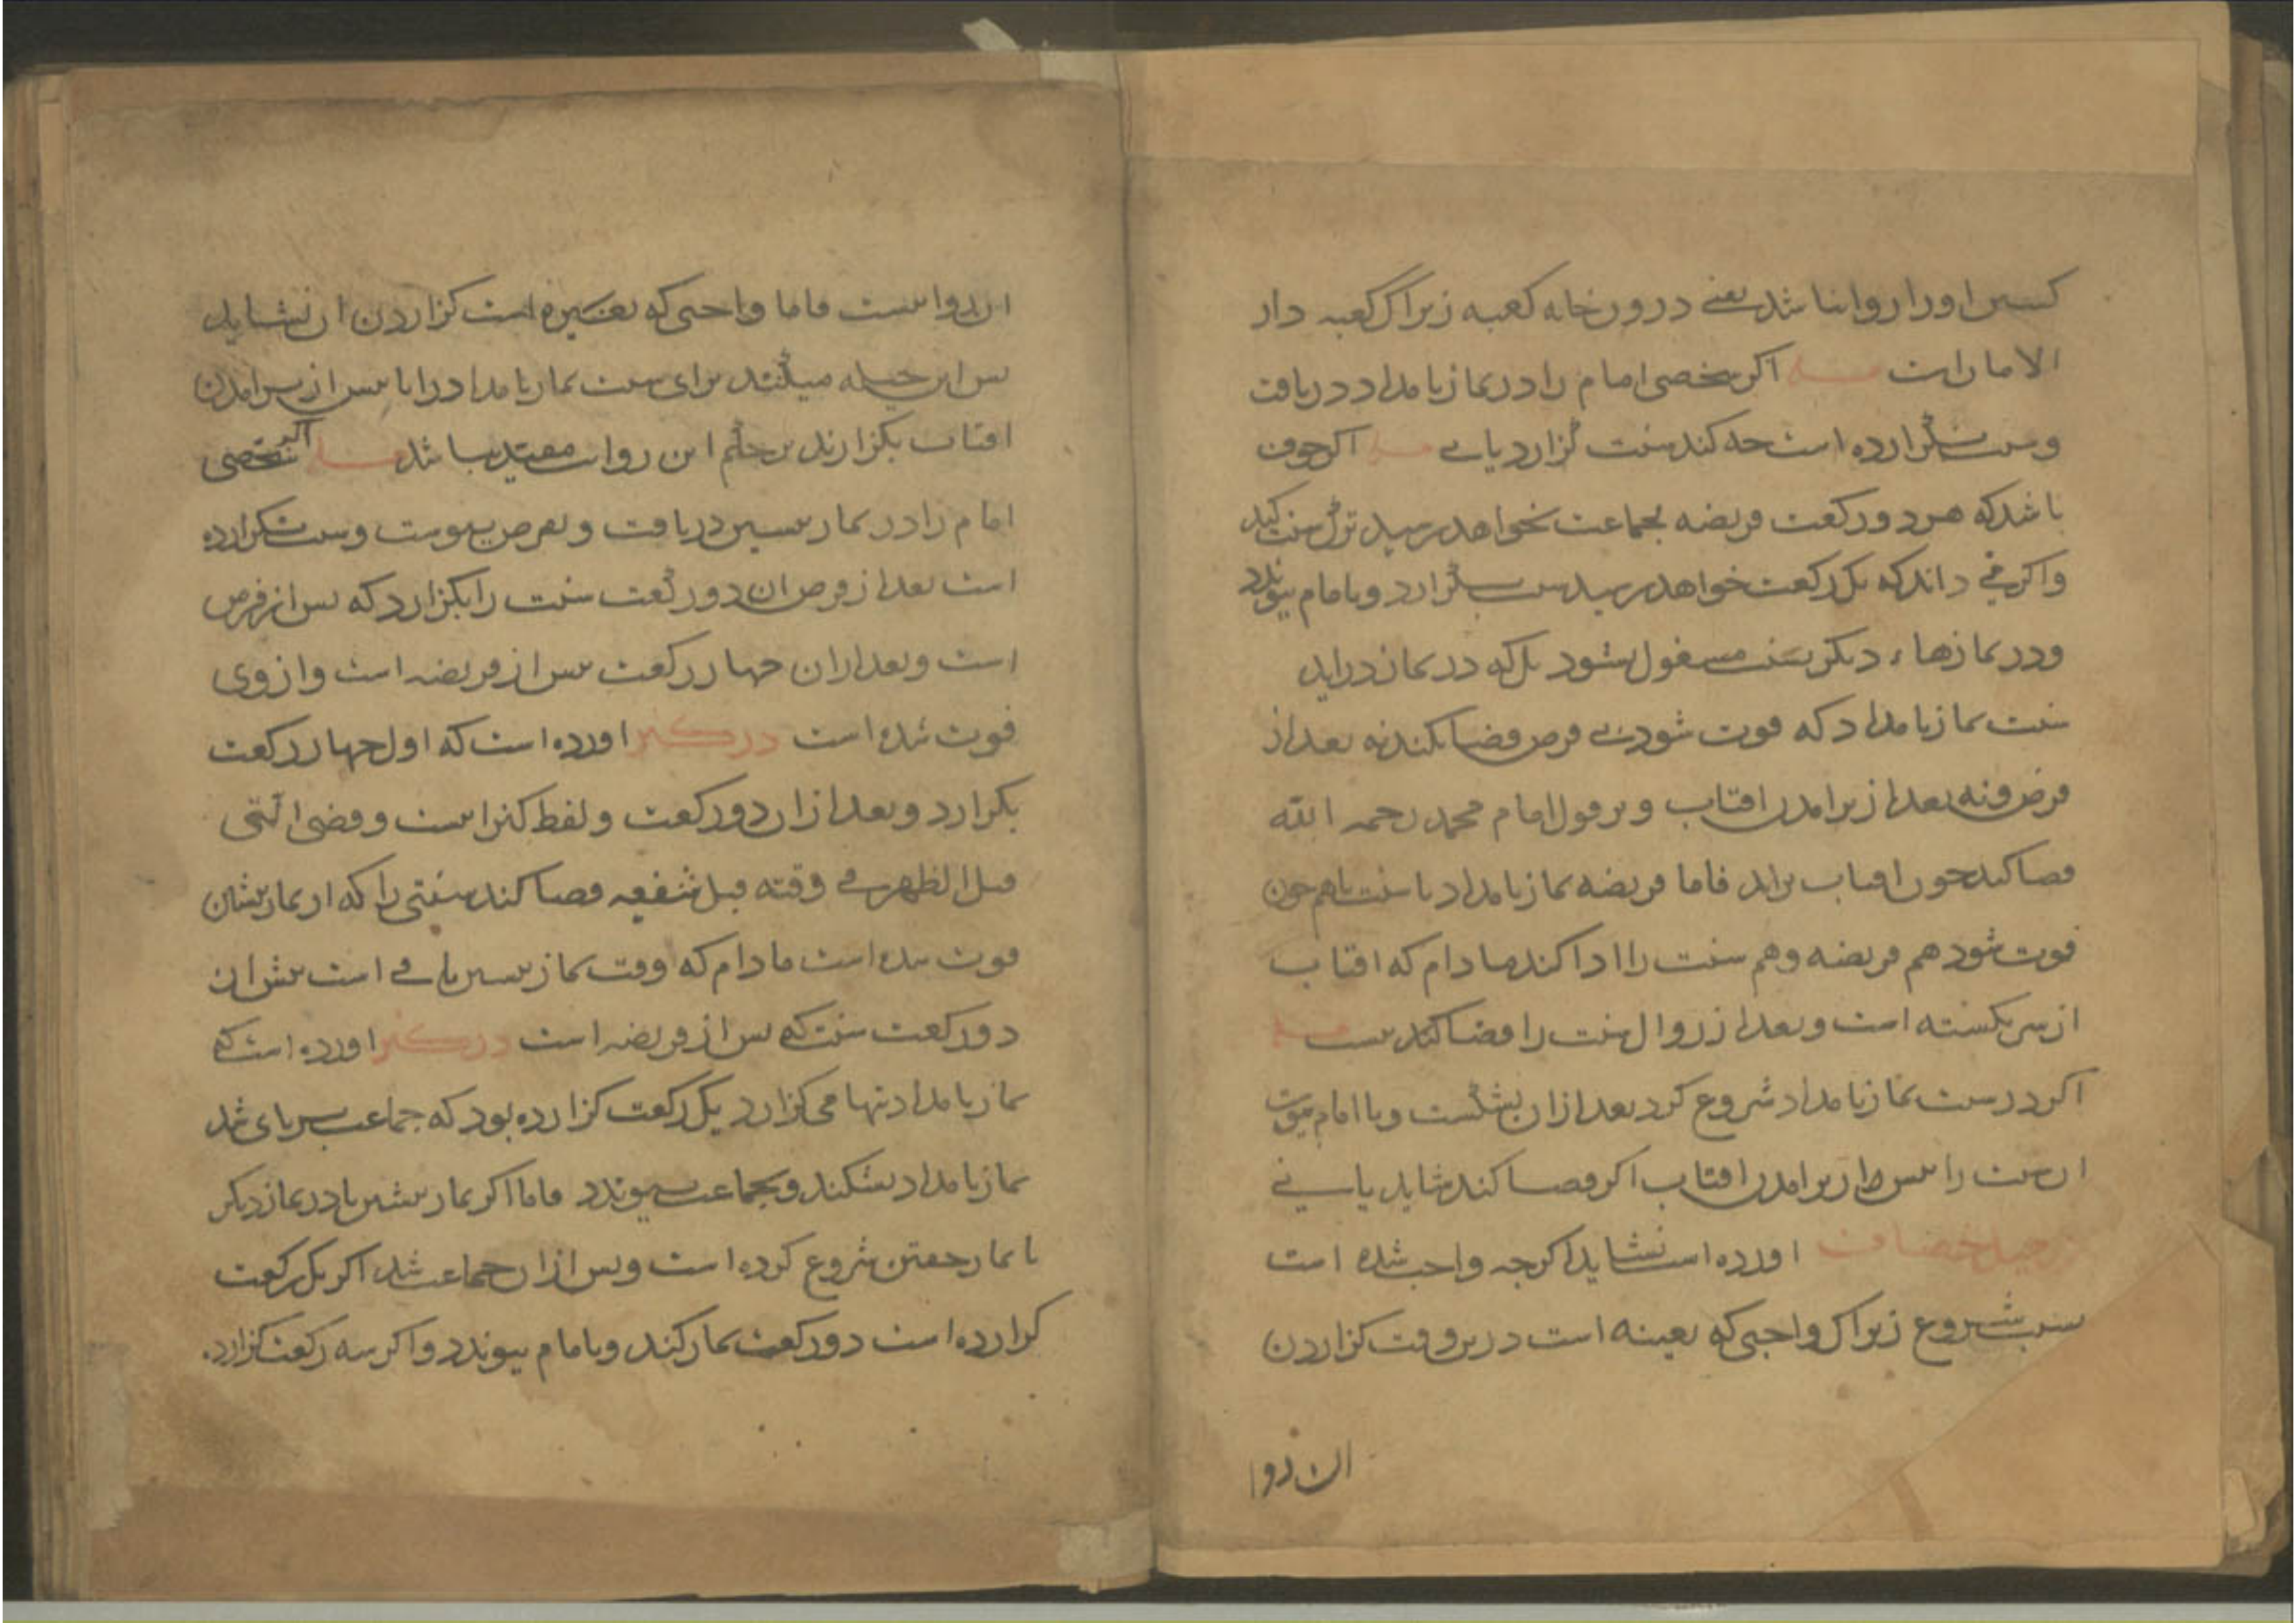 کسس او را روا نباشد یعنی در ورخانه کعبه زیراک کعبه دار
الامان است مسله اکر شخصی امام را در نماز بامداد دریافت
و سنت نکزارده است جه کند سنت کزارد یا نی مسله اکر خوف
باشد که هر دو رکعت فریضه بجماعت نخواهد رسید ترک سنت کند
و اکر می داند که یک رکعت خواهد رسید سنت بکزارد و بامام پیوندد
و در نمازهاء دیکر بسنت مشغول نشود بل که در نماز دراید
سنت نماز بامداد که فوت شود بی فرض قضا نکند نه بعد از
فرض و نه بعد از برامدن افتاب و بر قول امام محمد رحمه الله
قضا کند جون افتاب براید فاما فریضه نماز بامداد با سنت باهم جون
فوت شود هم فریضه و هم سنت را ادا کند مادام که افتاب
از سر نکشته است و بعد از زوال سنت را قضا کند نیست مسله
اکر در سنت نماز بامداد شروع کرد بعد ازان بشکست و با امام پیوست
ان سنت را پس از برامدن افتاب اکر قضا کند شاید یا نی
در حیل خصاف اورده است نشاید اکرجه واجب شده است
سبب شروع زیراک واجبی که بعینه است درین وقت کزاردن
ان روا
ان روا نیست فاما واجبی که بغیره است کزاردن ان نشاید
پس این حیله میکنند برای سنت نماز بامداد را تا پس از برامدن
افتاب بکزارند بر حکم این روایت مفید نباشد مسله اکر شخصی
امام را در نماز پسین دریافت و بفرض پیوست و سنت نکزارده
است بعد از فرض ان دو رکعت سنت را بکزارد که پس از فرض
است و بعد ازان جهار رکعت پس از فریضه است و از وی
فوت شده است در کنز اورده است که اول جهار رکعت
بکزارد و بعد ازان دو رکعت و لفظ کنز اینست و قضی التی
قبل الظهر فی وقته قبل شفعه قضا کند سنتی را که از نماز پیشین
فوت شده است مادام که وقت نماز پسین باقی است پیش از ان
دو رکعت سنت که پس از فریضه است در کنز اورده است که
نماز بامداد تنها می کزارد یک رکعت کزارده بود که جماعت برپای شد
نماز بامداد بشکند و بجماعت پیوندد فاما اکر نماز پیشین یا در نماز دیکر
یا نماز خفتن شروع کرده است و پس ازان جماعت شد اکر یک رکعت
کزارده است دو رکعت نماز کند و بامام پیوندد و اکر سه رکعت کزارد